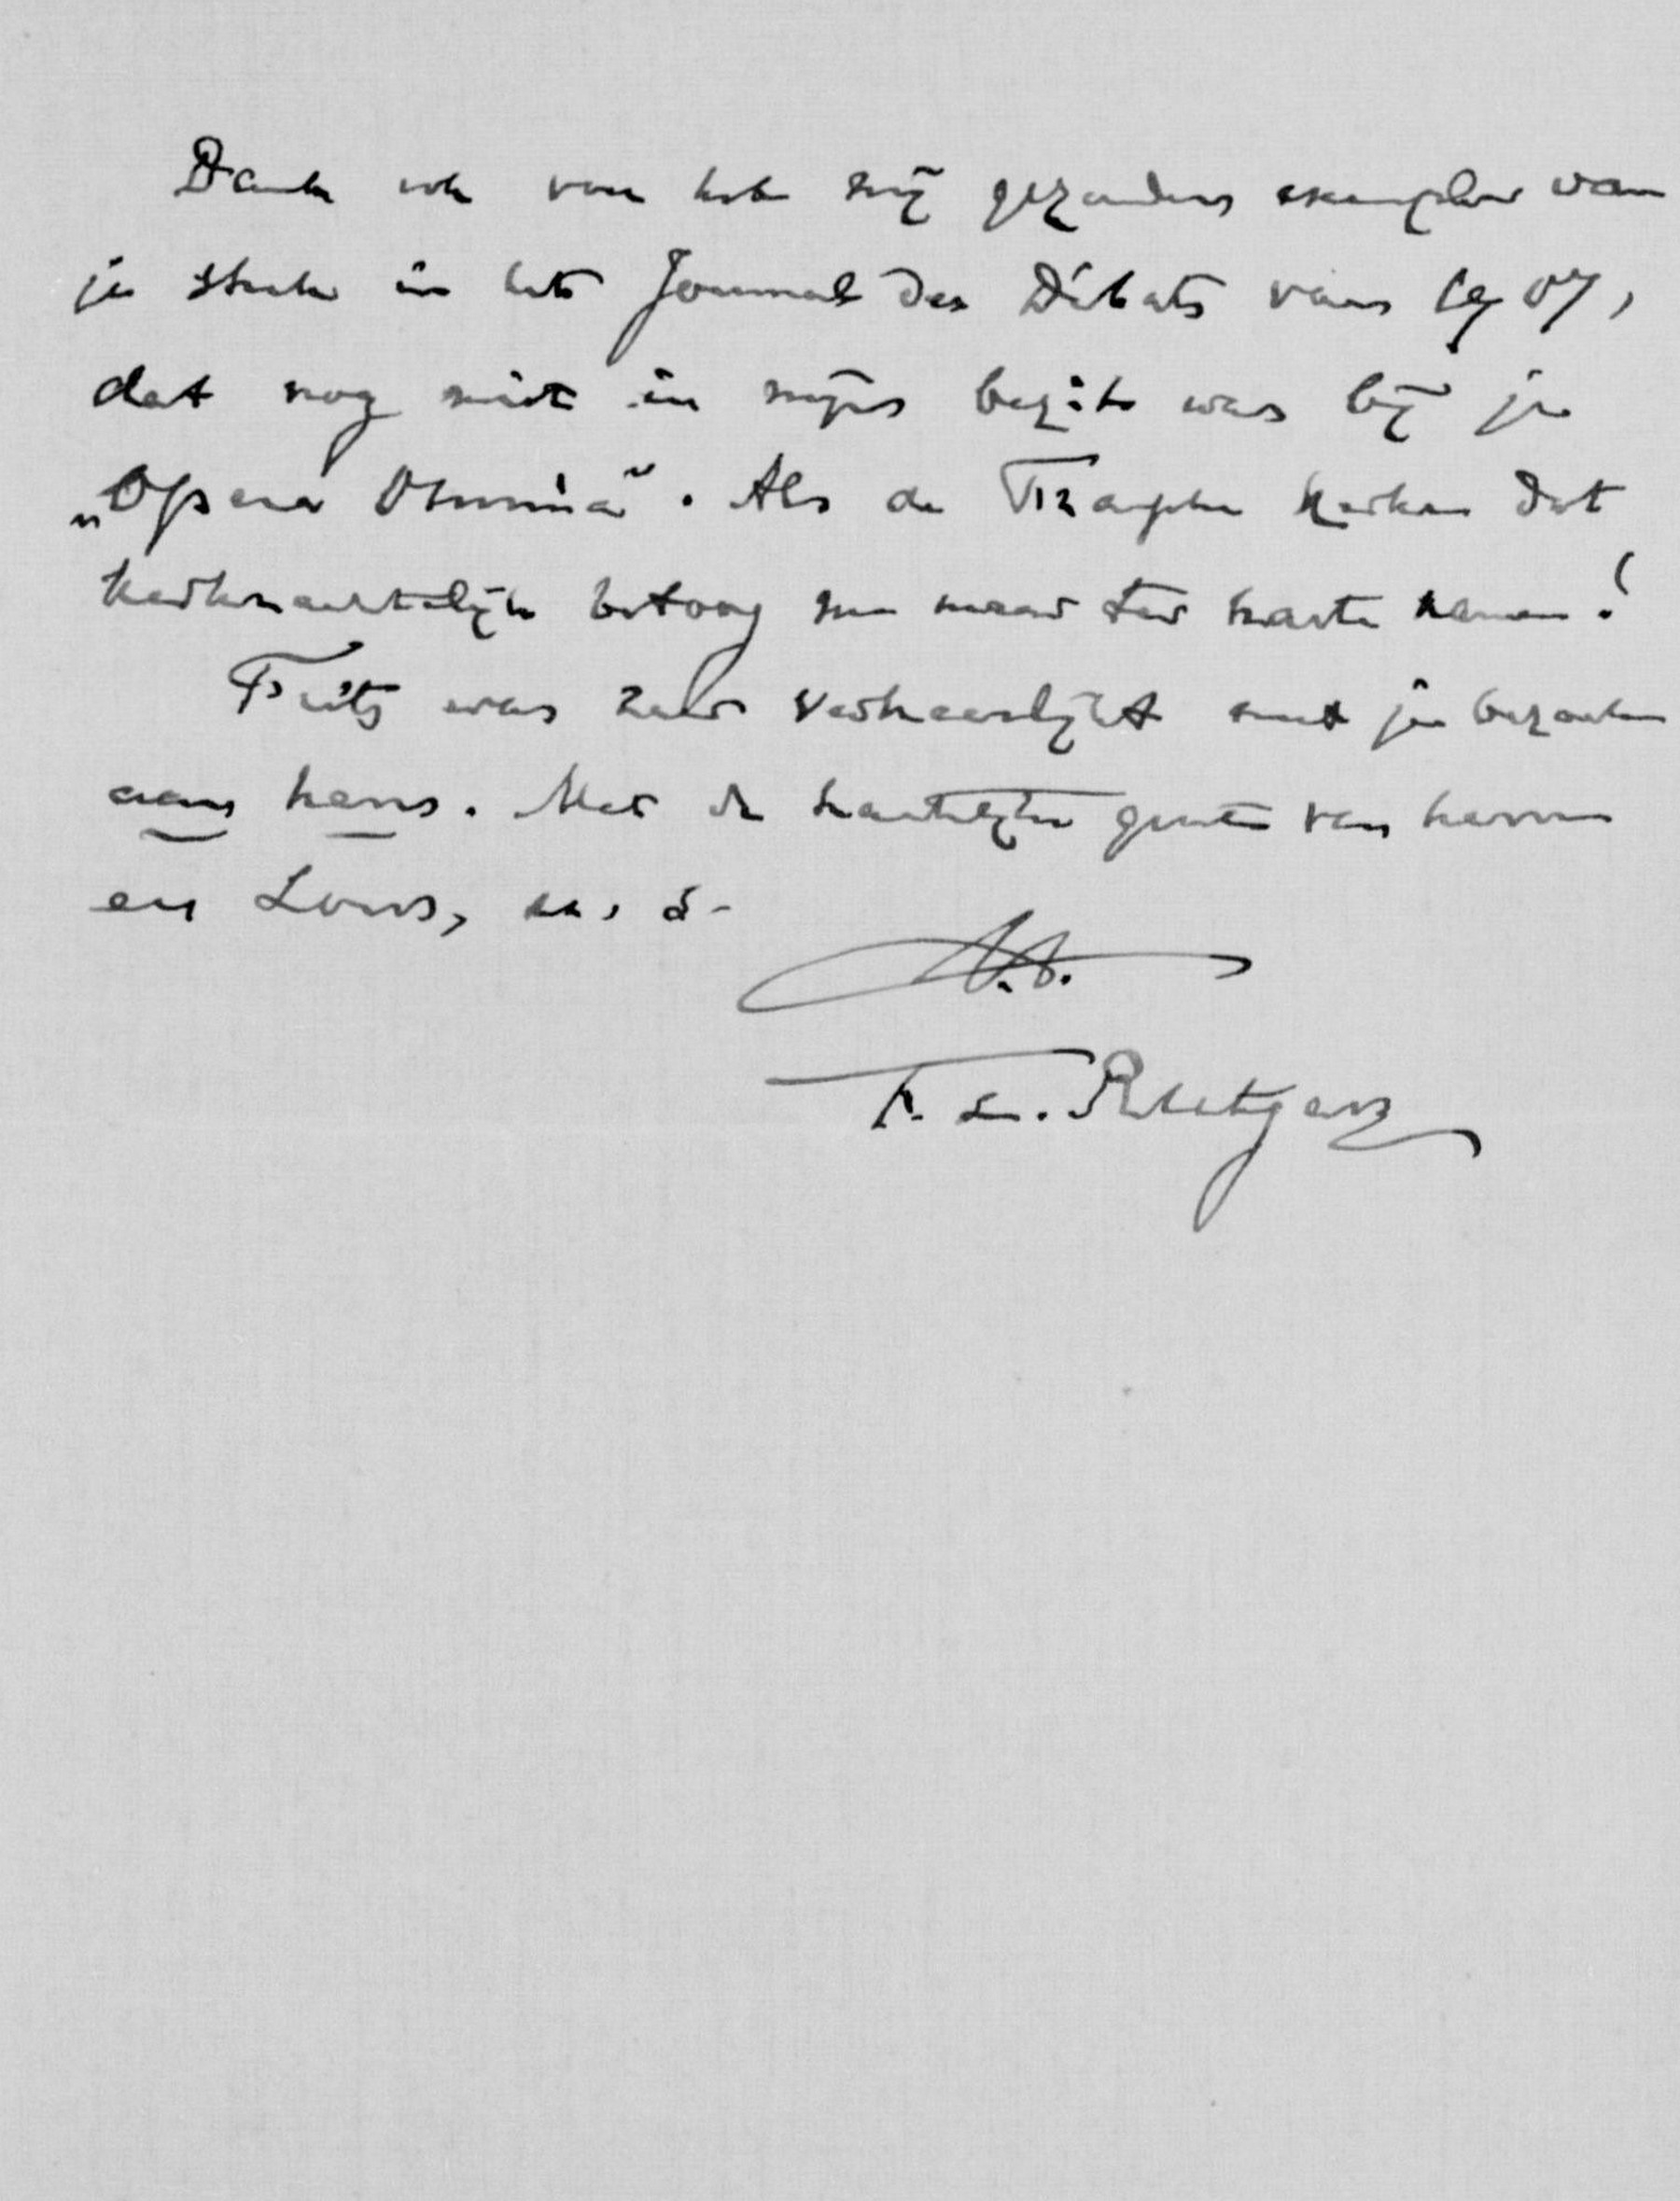 Dank ook voor het mij gezonden exemplaar van
je stuk in het Journal des Débats van 1907,
dat nog niet in mijn bezit was bij je
„Opera Omnia”. Als de Fransche kerken dat
betoog nu maar ter harte nemen!
Frits was zeer met je bezoek
aan hem. Met de hartelijke groeten van hem
en Louis, t. à.
t.t.
F. L. Rutgers